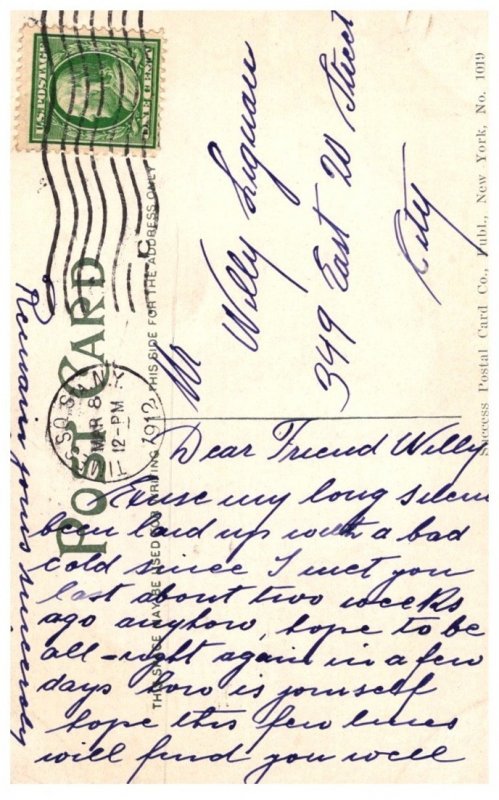 U.S. POSTAGE
ONE CENT
POST CARD
MAR 8
12-PM
1912
THIS SPACE MAY BE USED FOR WRITING
THIS SIDE FOR THE ADDRESS ONLY
Mr Willy
349 East 20 Street
City
Success Postal Card Co., Publ., New York, No. 1019
Dear Friend Willy
Exuse my long silen
been laid up with a bad
cold since I met you
last about two weeks
ago anyhow, hope to be
all-right again in a few
days how is yourself
hope this few lines
will find you well
Remain yours sincerely